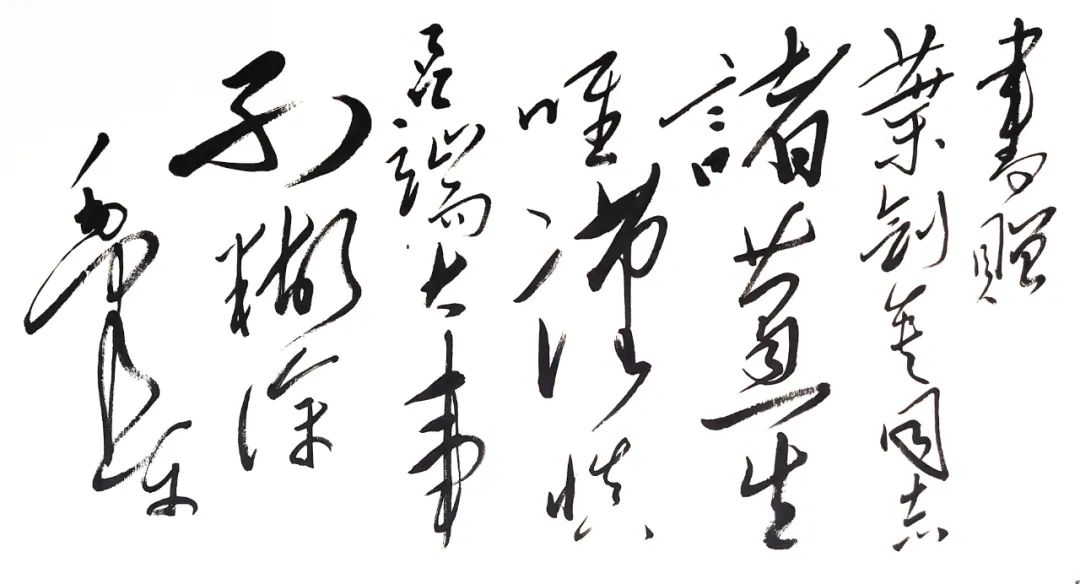 書贈
葉劍英同志
諸葛一生
唯謹慎
吕端大事
不糊涂
毛泽东